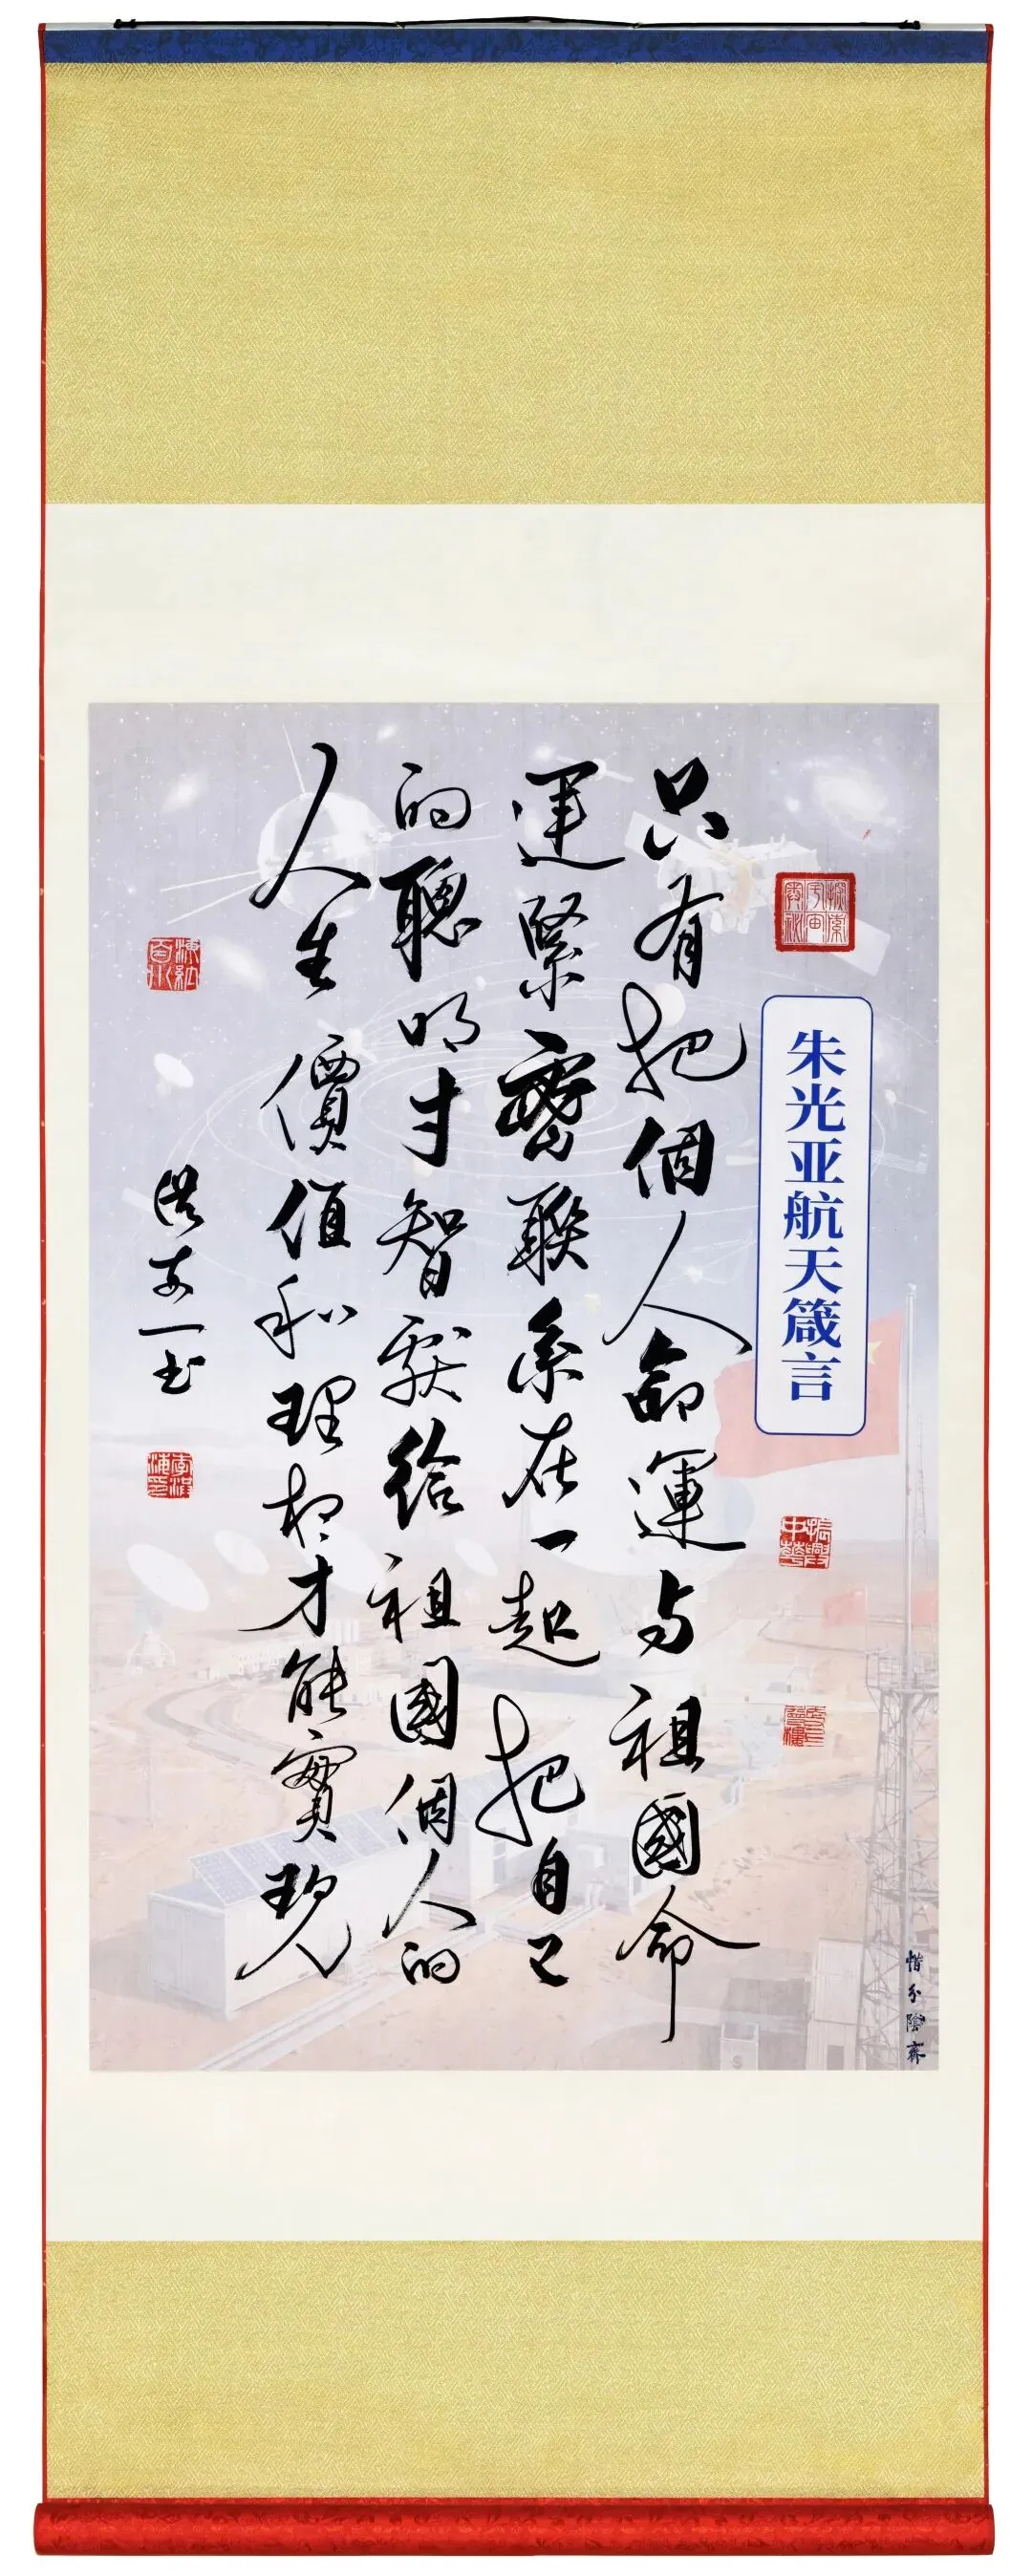 探索宇宙奧秘
朱光亚航天箴言
振興中華
惜分陰齋
只有把個人命運与祖國命
運緊密聯系在一起把自己
的聰明才智獻給祖國個人的
人生價值和理想才能實現
海納百川